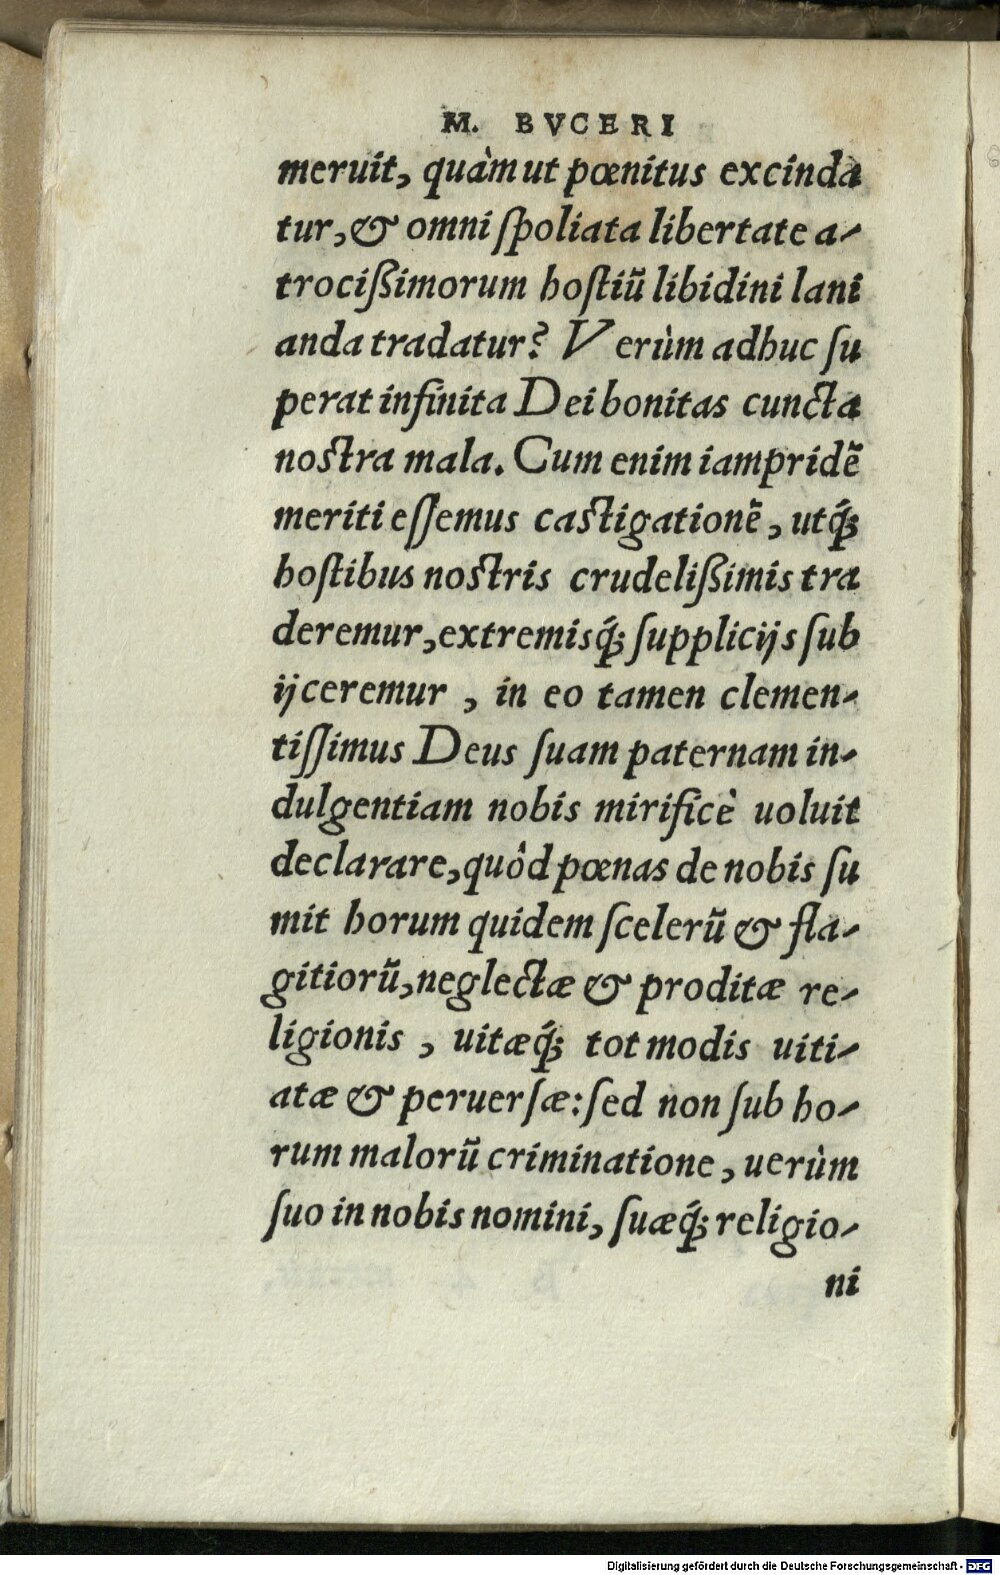 M. BVCERI
meruit, quàm ut pœnitus excinda
tur, & omni ſpoliata libertate a-
trociſſimorum hoſtiũ libidini lani
anda tradatur? Verùm adhuc ſu
perat infinita Dei bonitas cuncta
noſtra mala. Cum enim iampridẽ
meriti eſſemus caſtigationẽ, utq́;
hoſtibus noſtris crudelißimis tra
deremur, extremisq́; ſupplicijs ſub
ijceremur, in eo tamen clemen-
tiſſimus Deus ſuam paternam in-
dulgentiam nobis mirificè uoluit
declarare, quôd pœnas de nobis ſu
mit horum quidem ſcelerũ & fla-
gitiorũ, neglectæ & proditæ re-
ligionis, uitæq́; tot modis uiti-
atæ & peruerſæ: ſed non ſub ho-
rum malorũ criminatione, uerùm
ſuo in nobis nomini, ſuæq́; religio-
ni
Digitalisierung gefördert durch die Deutsche Forschungsgemeinschaft - DFG